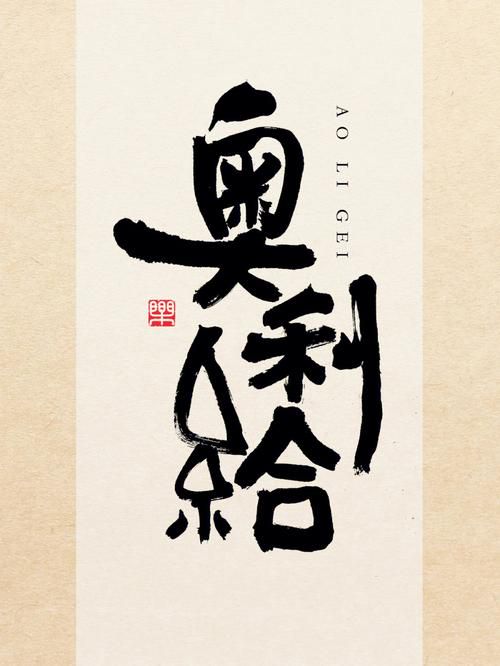 奥利給
AO LI GEI